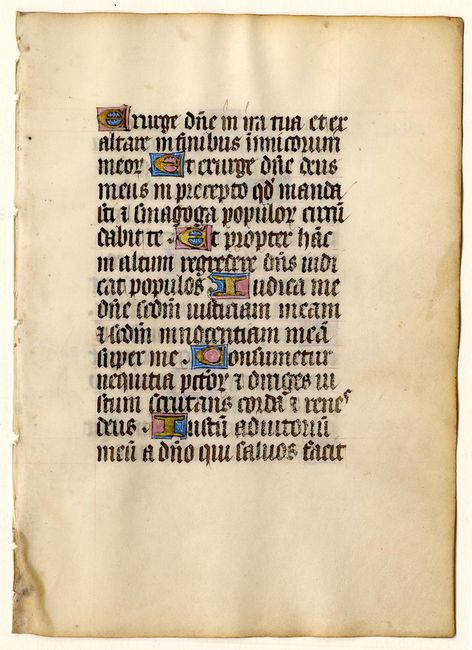 Exurge dñe in ira tua et ex
altare in finibus inimicorum
meoꝝ Et exurge dñe deus
meus in precepto qđ manda
sti ⁊ sinagoga populoꝝ circū
dabit te. Et propter hāc
in altum regredere dñs iudi
cat populos Iudica me
dñe scđm iusticiam meam
⁊ scđm innocentiam meā
super me. Consumetur
nequitia pctōꝝ ⁊ diriges iu
stum scrutans corda ⁊ renes
deus. Iustū adiutoriū
meū a dño qui saluos facit